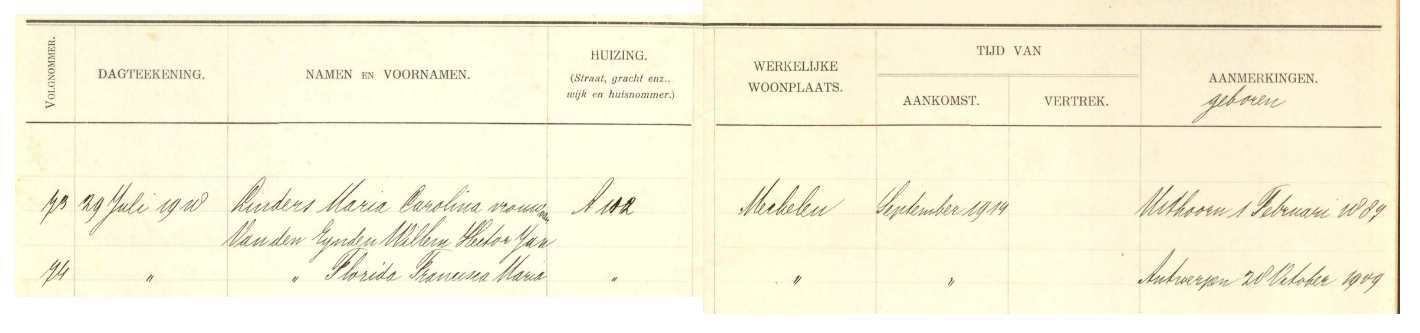 VOLGNOMMER.
DAGTEEKENING.
NAMEN EN VOORNAMEN.
HUIZING.
(Straat, gracht enz., wijk en huisnommer.)
WERKELIJKE WOONPLAATS.
TIJD VAN
AANKOMST.
VERTREK.
AANMERKINGEN.
geboren
73 29 Juli 1918 Linders Maria Carolina vrouw van A 102 Mechelen September 1914 Uithoorn 1 Februari 1889
Van den Eynden Willem Hector Jan
74 " " Florida Francisca Maria " " " Antwerpen 28 October 1909